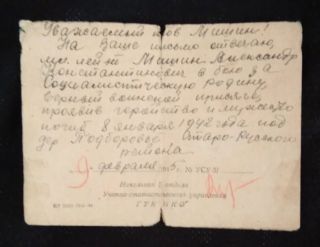 Уважаемый тов Мишин!
На Ваше письмо отвечаю,
мл. лейт Мишин Александр
Константинович в бою за
Социалистическую родину
верный воинской присяге,
проявив геройство и мужество
погиб 8 января 1942 года под
дер Подборовье Старо-Русского
района
9 февраля
Начальник отдела
Учетно-статистического управления